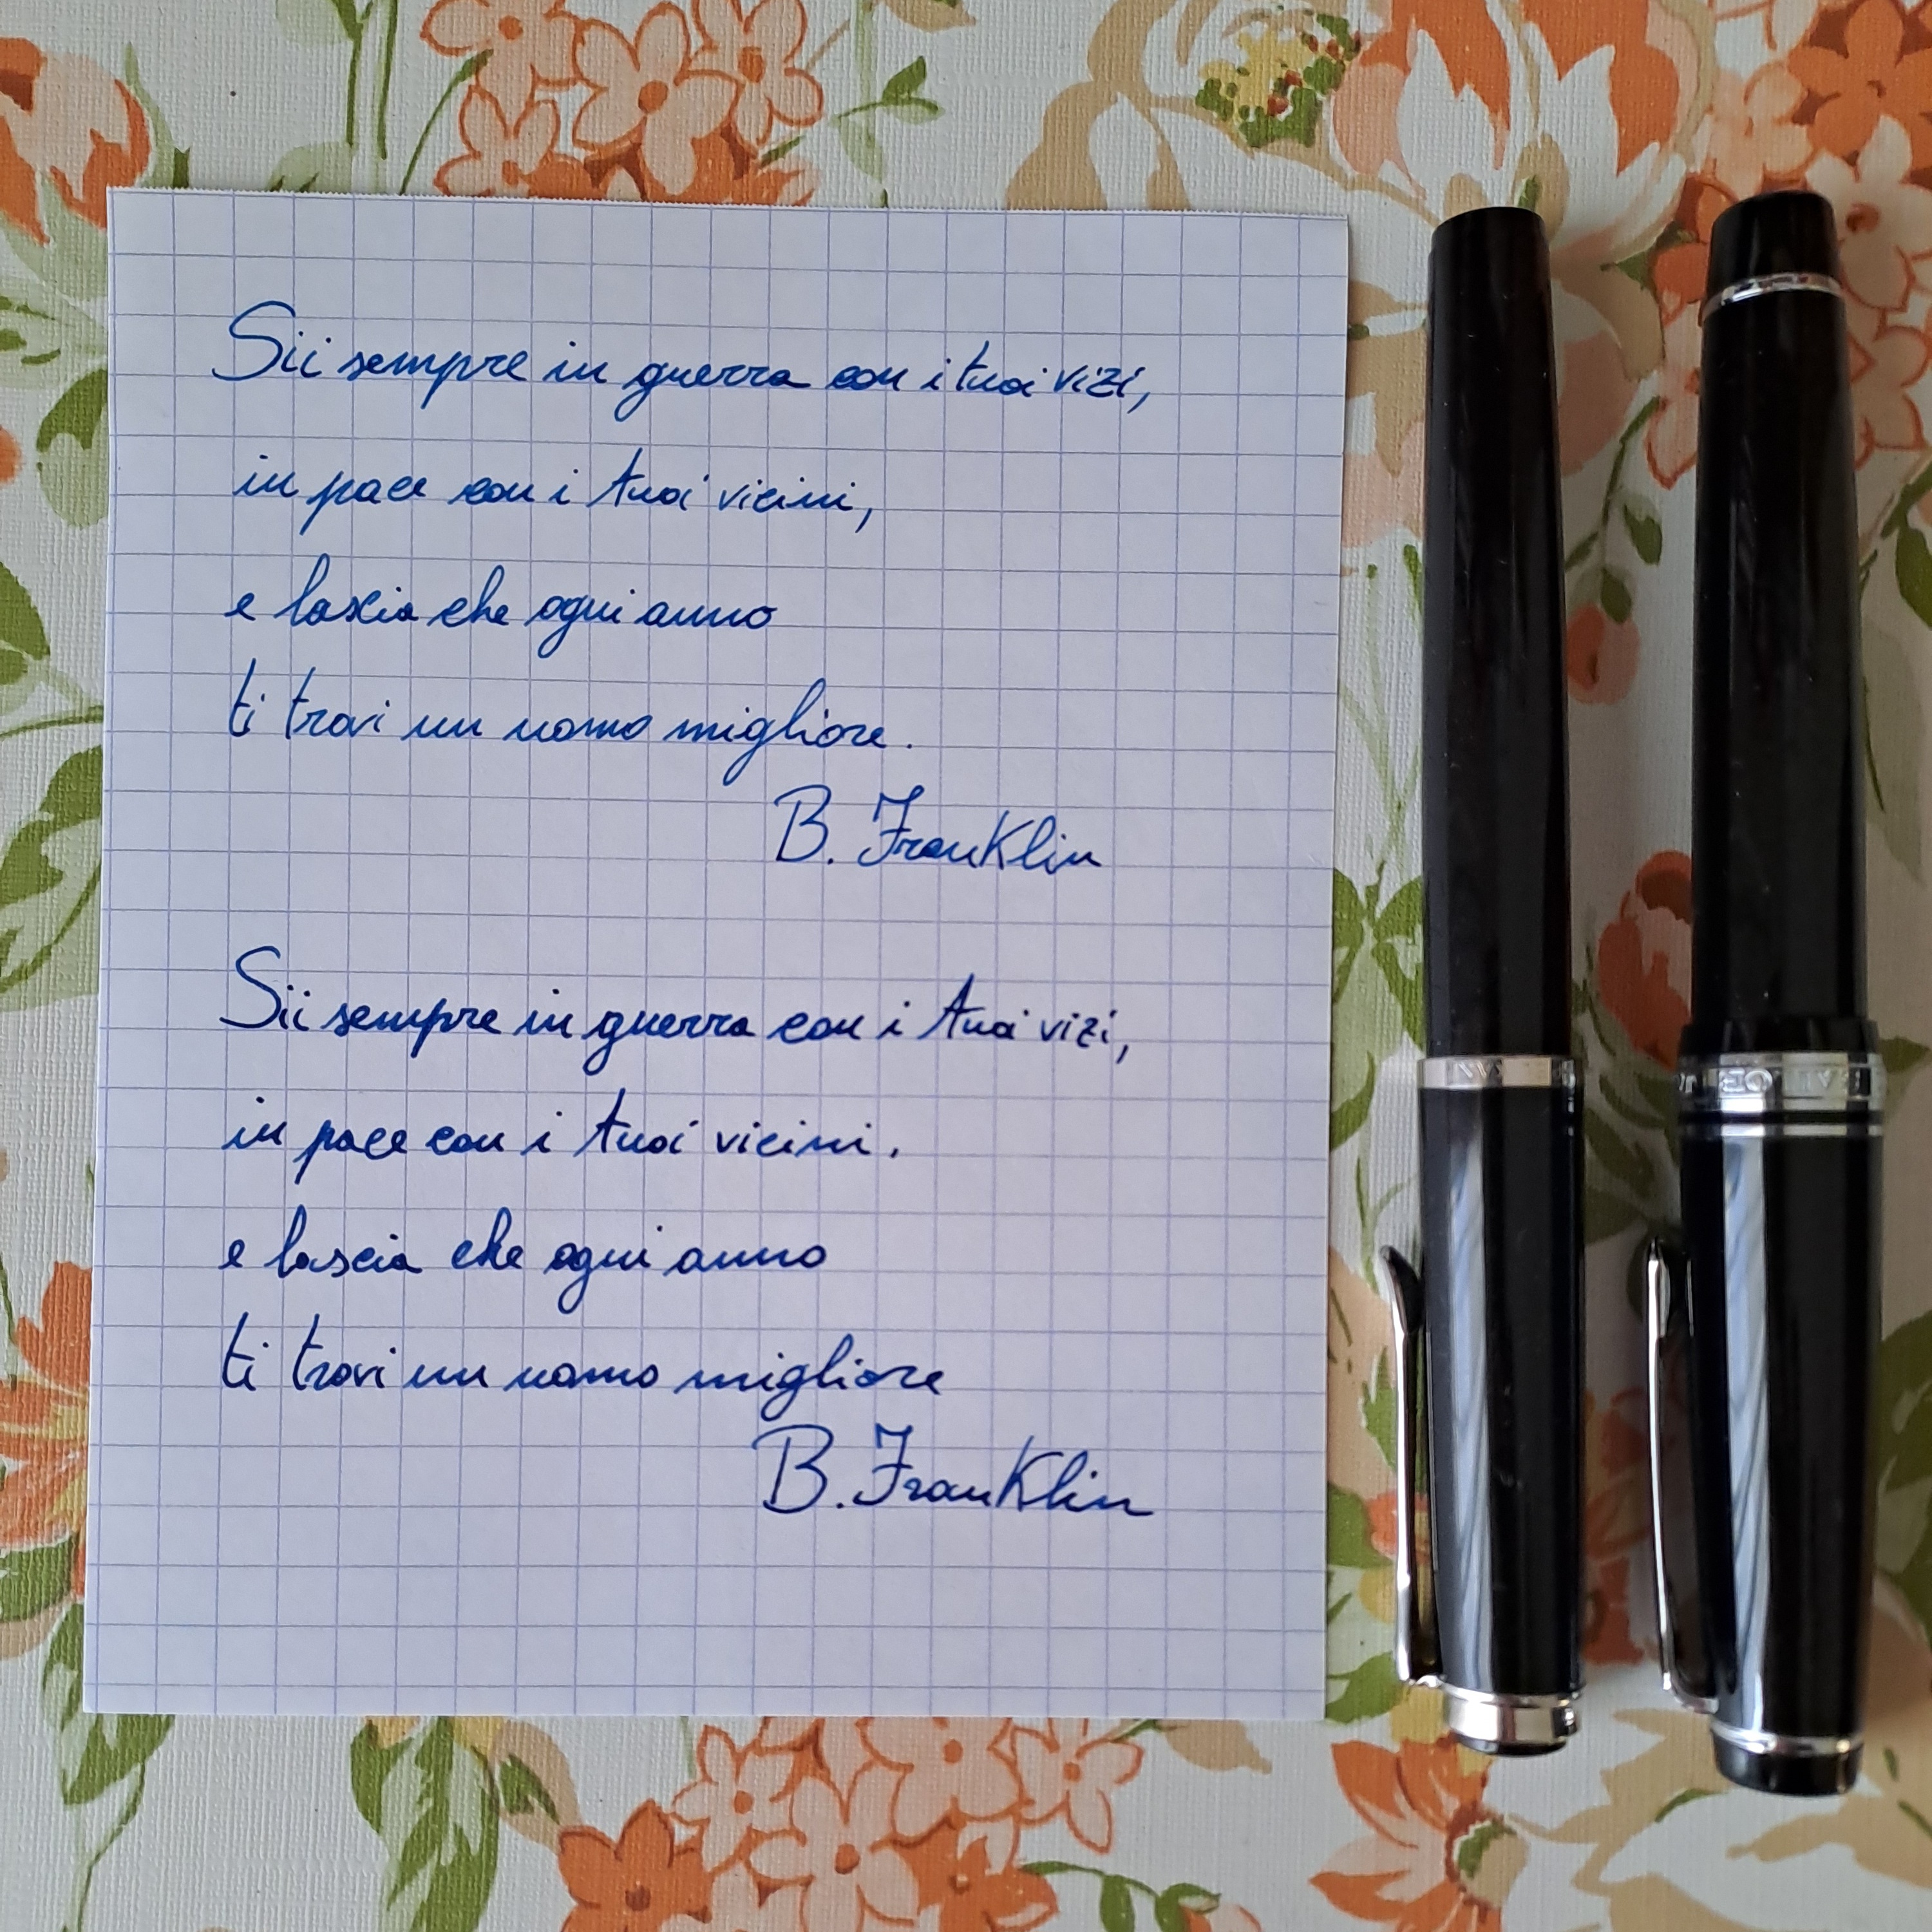 Sii sempre in guerra con i tuoi vizi,
in pace con i tuoi vicini,
e lascia che ogni anno
ti trovi un uomo migliore.
B. Franklin
Sii sempre in guerra con i tuoi vizi,
in pace con i tuoi vicini.
e lascia che ogni anno
ti trovi un uomo migliore
B. Franklin